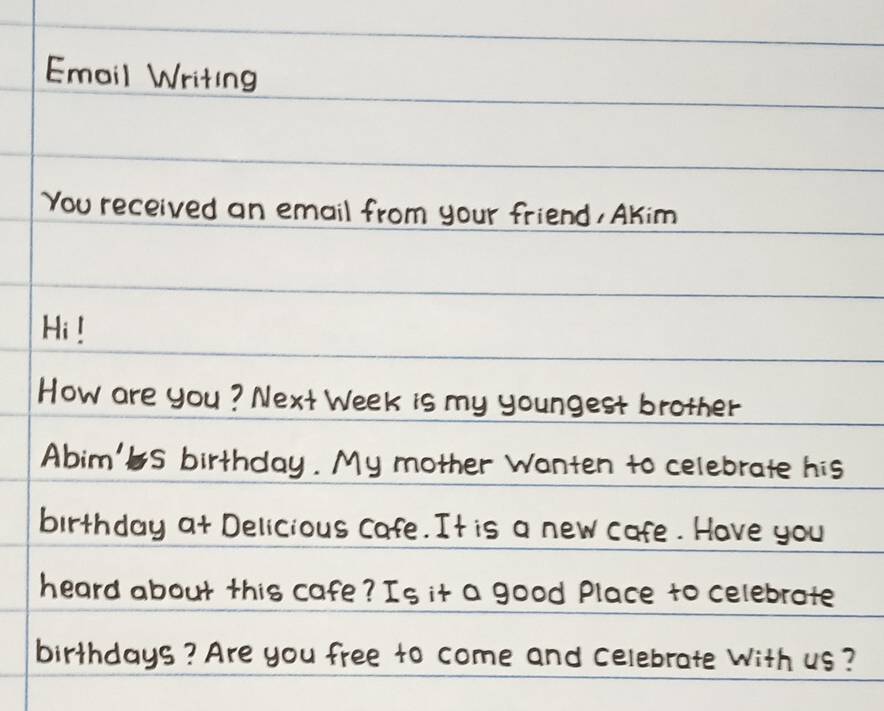 Email Writing
You received an email from your friend, Akim
Hi!
How are you? Next Week is my youngest brother
Abim's birthday. My mother Wanten to celebrate his
birthday at Delicious Cafe. It is a new cafe. Have you
heard about this cafe? Is it a good Place to celebrate
birthdays? Are you free to come and celebrate With us?